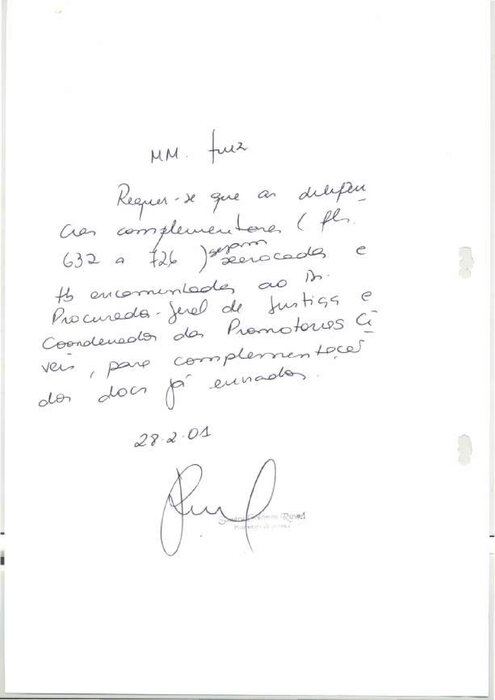 MM. Juiz
Requer-se que as diligên
cias complementares ( fls.
632 a 726 ) sejam xerocadas e
tb encaminhadas ao Dr.
Procurador-Geral de Justiça e
Coordenador das Promotorias Cí
veis, para complementações
dos docs já enviados.
28.2.01